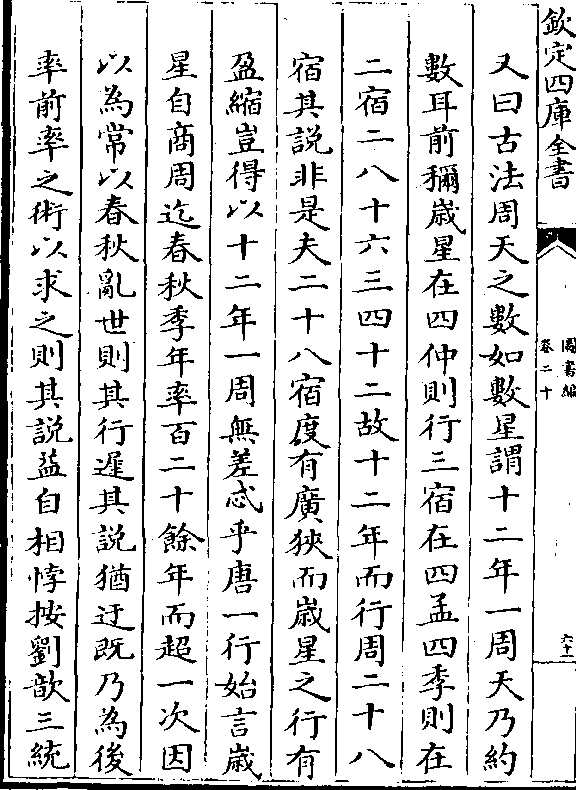 欽定四庫全書
圖書編
卷二十
六十
又曰古法周天之數如數星謂十二年一周天乃約
數耳前穪嵗星在四仲則行三宿在四孟四季則在
二宿二八十六三四十二故十二年而行周二十八
宿其說非是夫二十八宿度有廣狹而嵗星之行有
盈縮豈得以十二年一周無差忒乎唐一行始言嵗
星自商周迄春秋季年率百二十餘年而超一次因
以為常以春秋亂世則其行遲其說猶迂既乃為後
率前率之術以求之則其說益自相悖按劉歆三統